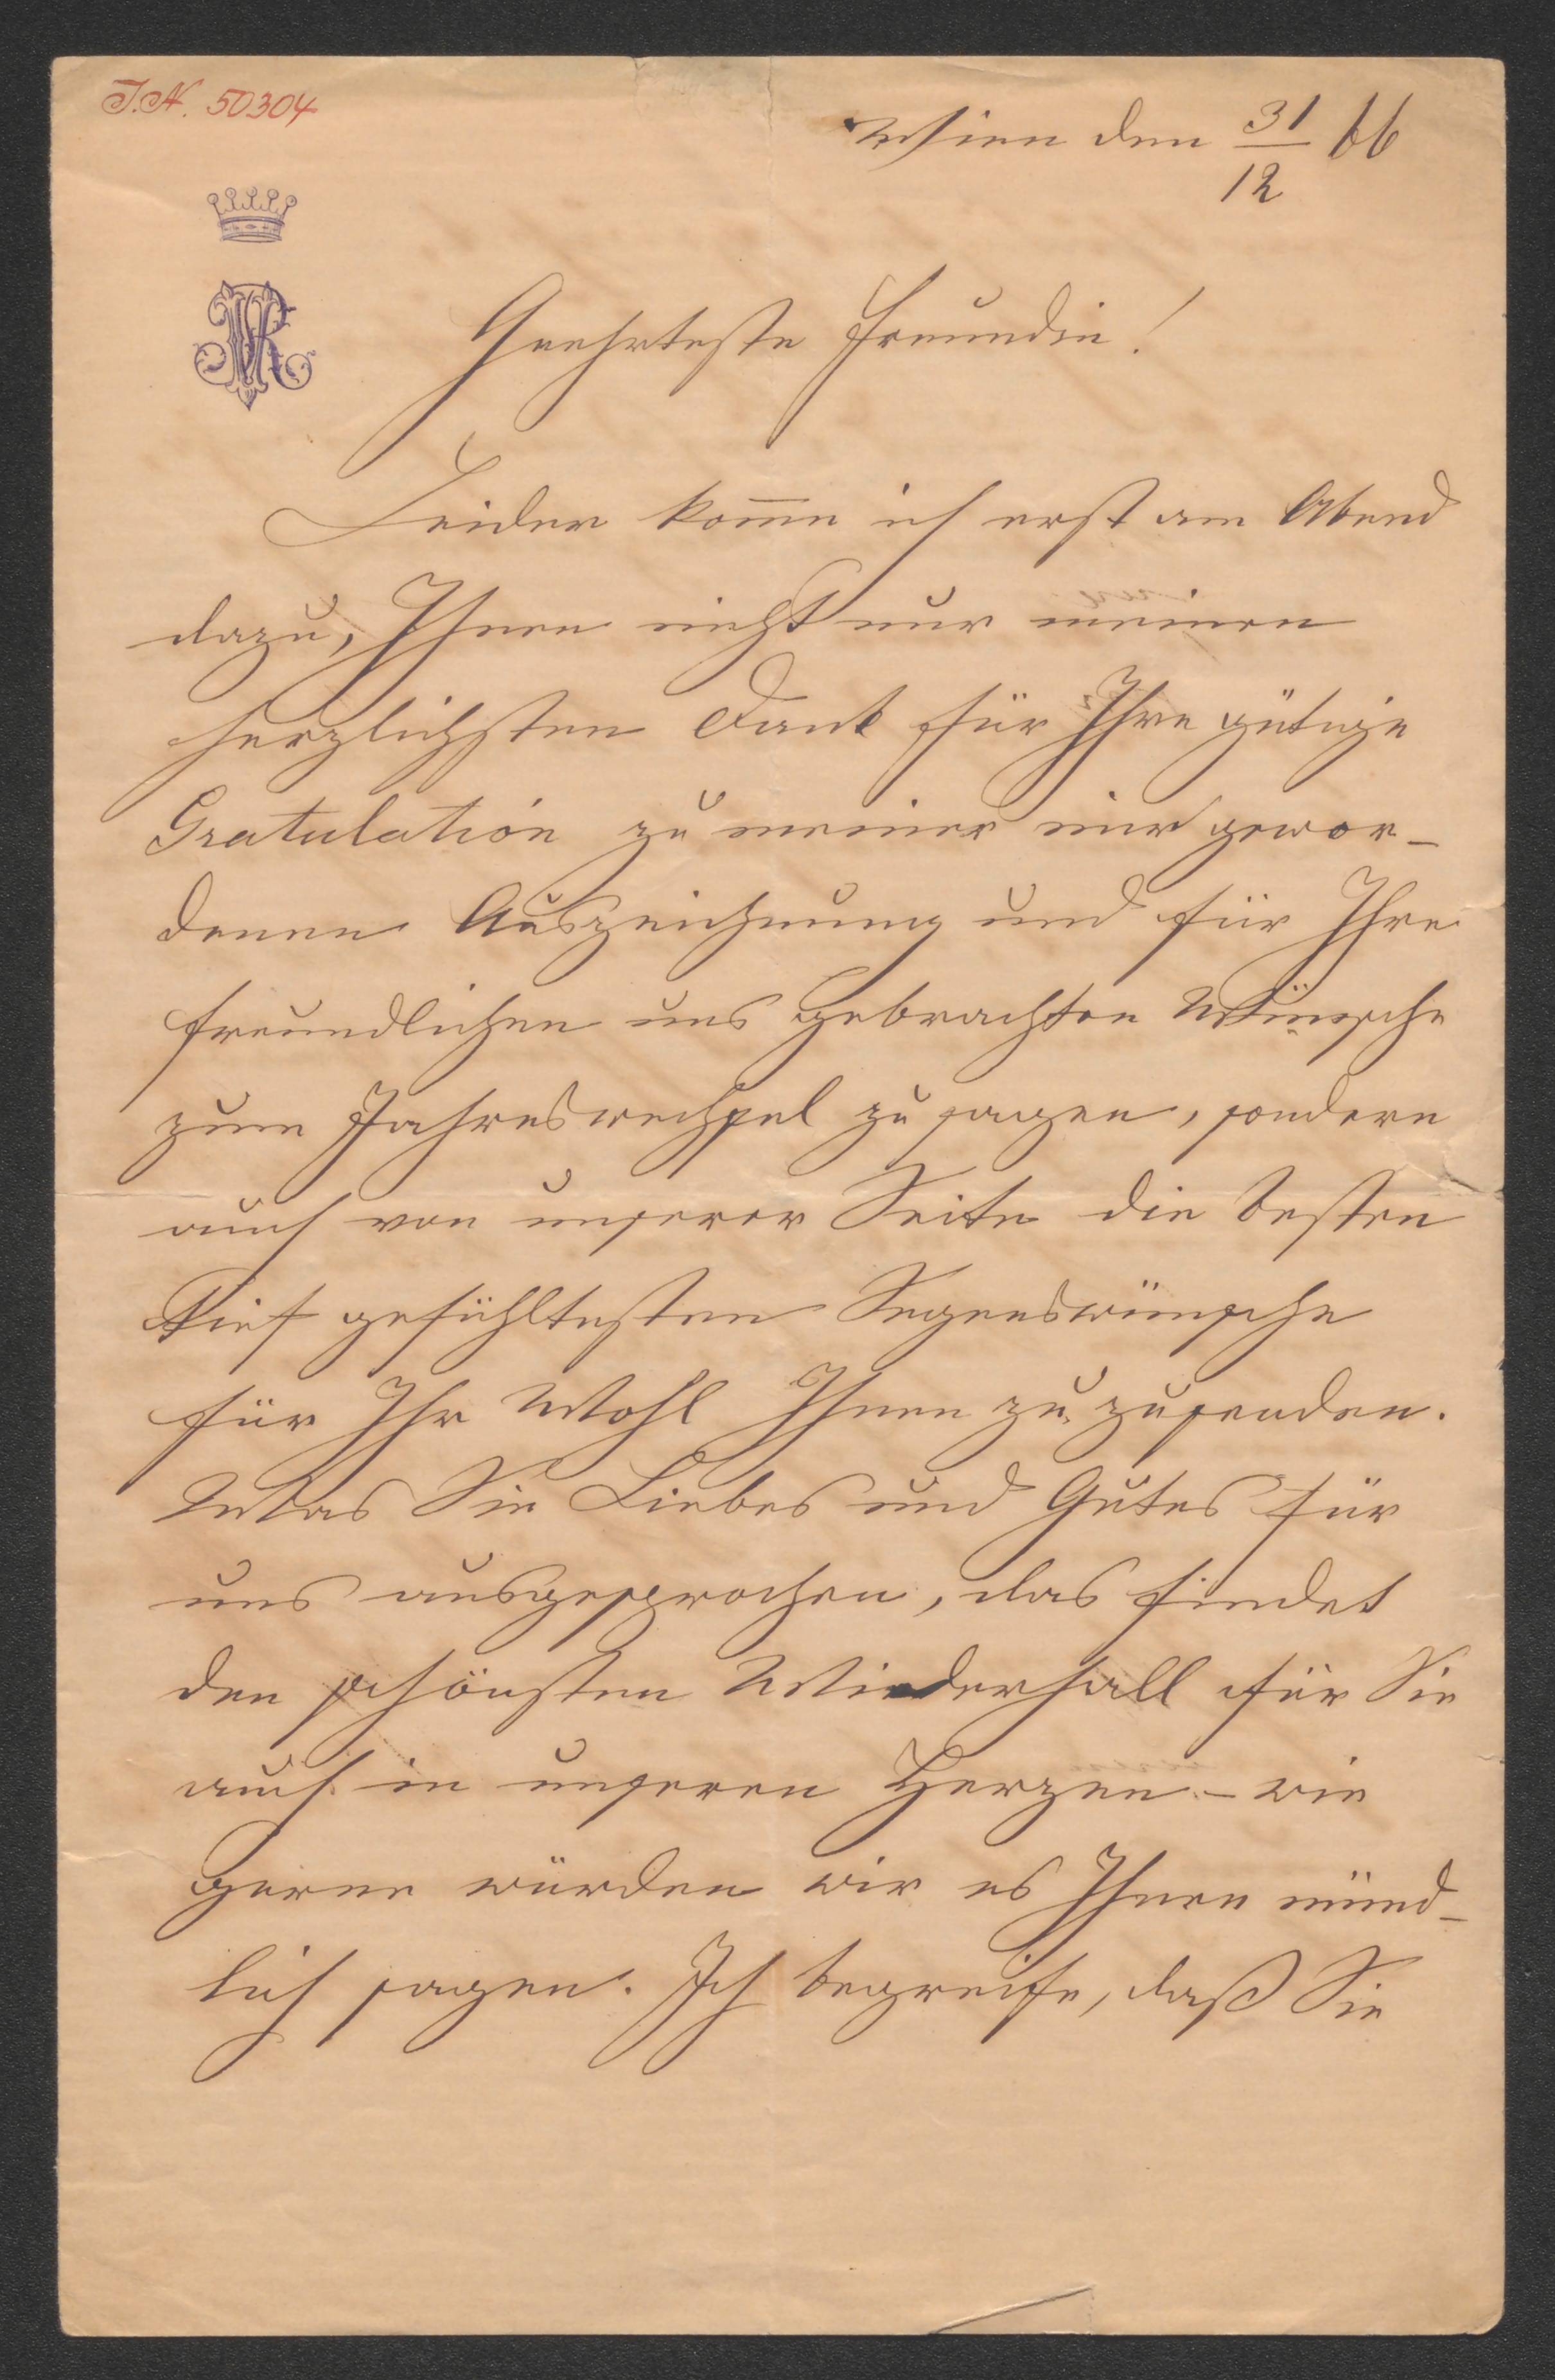 J.N. 50304
Wien den 31/12 66
Geehrteste Freundin!
Leider kom̅e ich erst am Abend
dazu, Ihnen nicht nur meinen
herzlichsten Dank für Ihre gütige
Gratulation zu meiner mir gewor-
denen Auszeichnung und für Ihre
freundlichen uns gebrachten Wünsche
zum Jahreswechsel zu sagen, sondern
auch von unserer Seite die besten
tief gefühltesten Segenswünsche
für Ihr Wohl Ihnen zuzusenden.
Was Sie Liebes und Gutes für
uns ausgesprochen, das findet
den schönsten Wiederhall für Sie
auch in unseren Herzen – wie
gerne würden wir es Ihnen münd-
lich sagen. Ich begreife, daß Sie